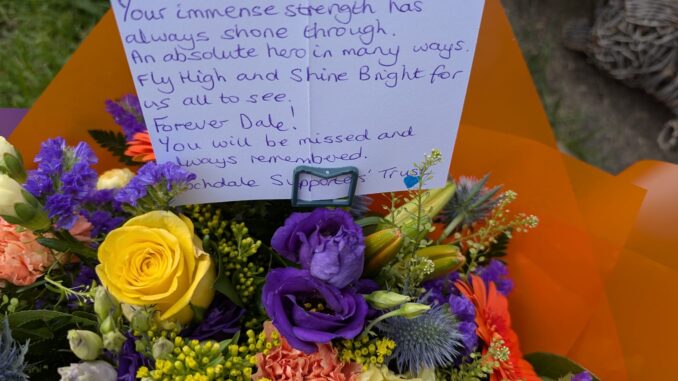 Your immense strength has
always shone through.
An absolute hero in many ways.
Fly High and Shine Bright for
us all to see.
Forever Dale!
You will be missed and
always remembered.
Rochdale Supporters' Trust